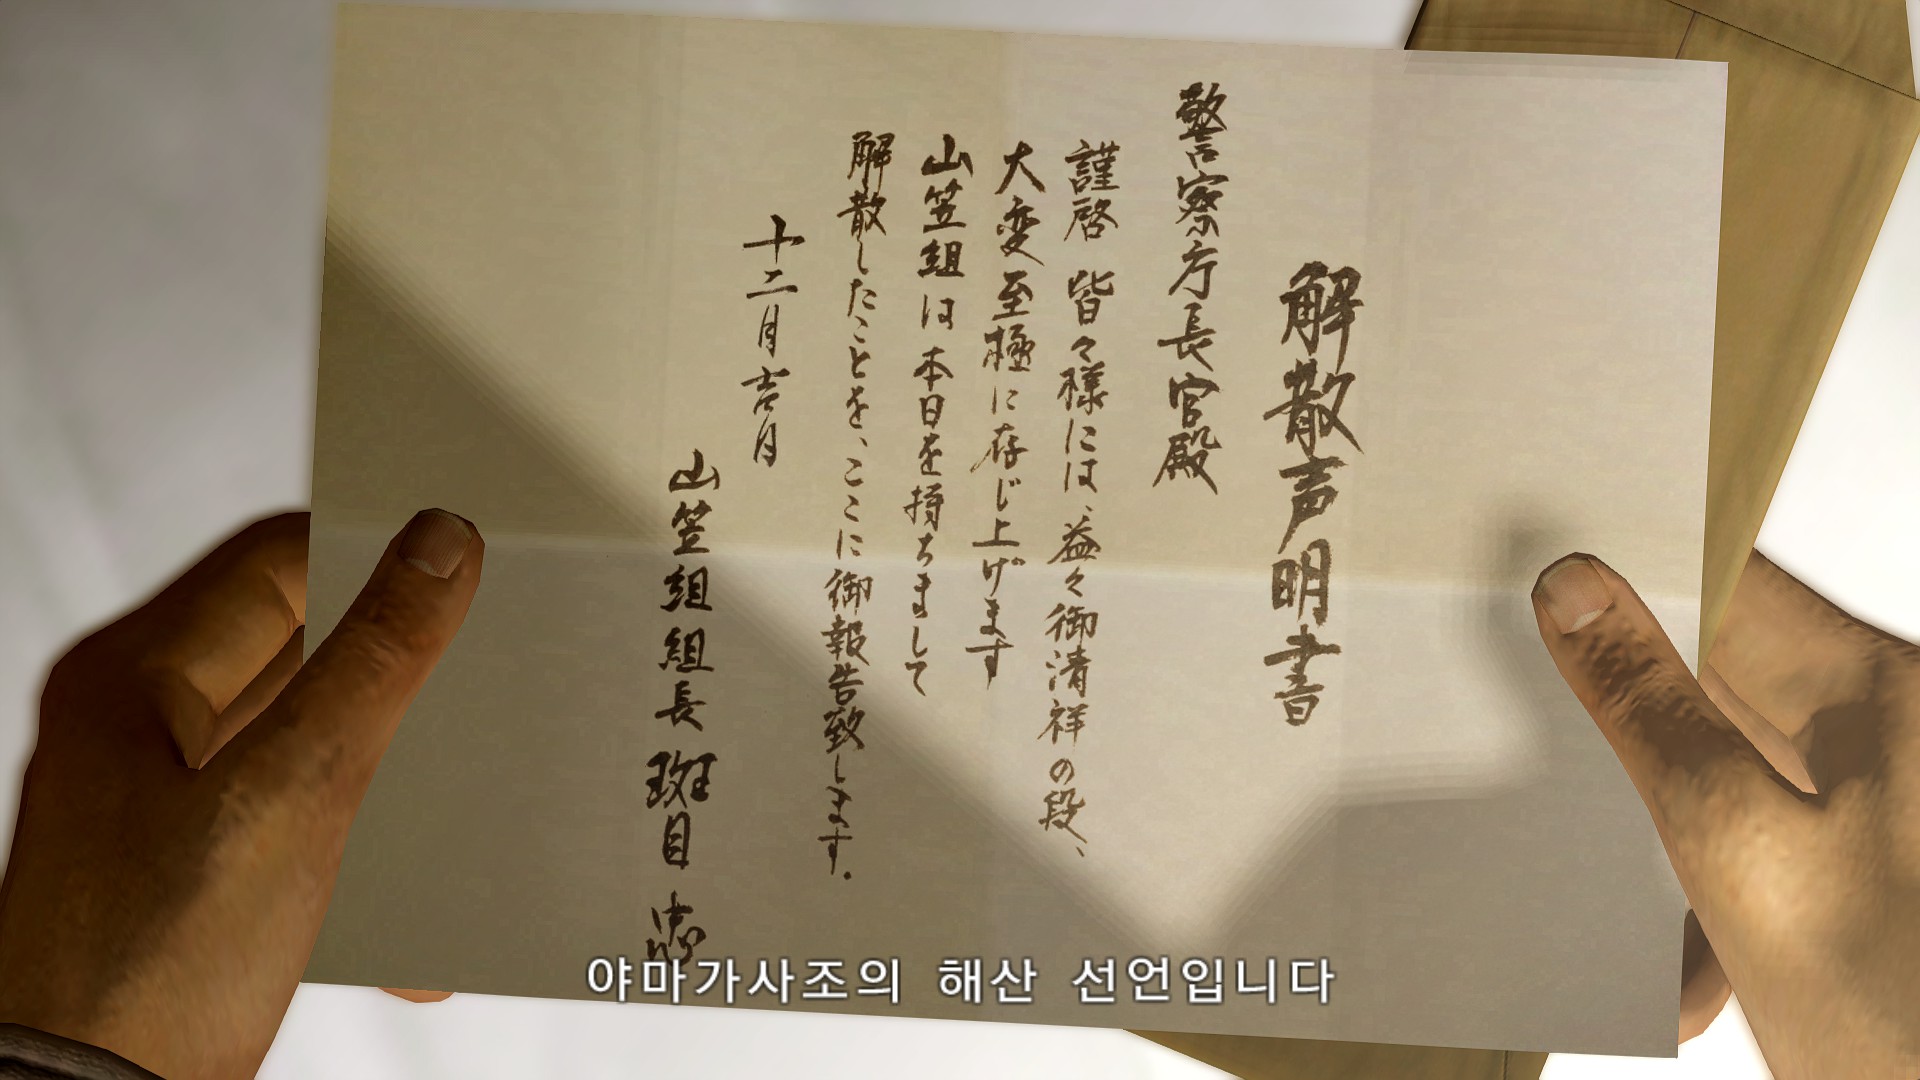 解散声明書
警察庁長官殿
謹啓 皆々様には、益々御清祥の段、
大変至極に存じ上げます
山笠組は本日を持ちまして
解散したことを、ここに御報告致します.
十二月吉月
山笠組組長 斑目 忠
야마가사조의 해산 선언입니다